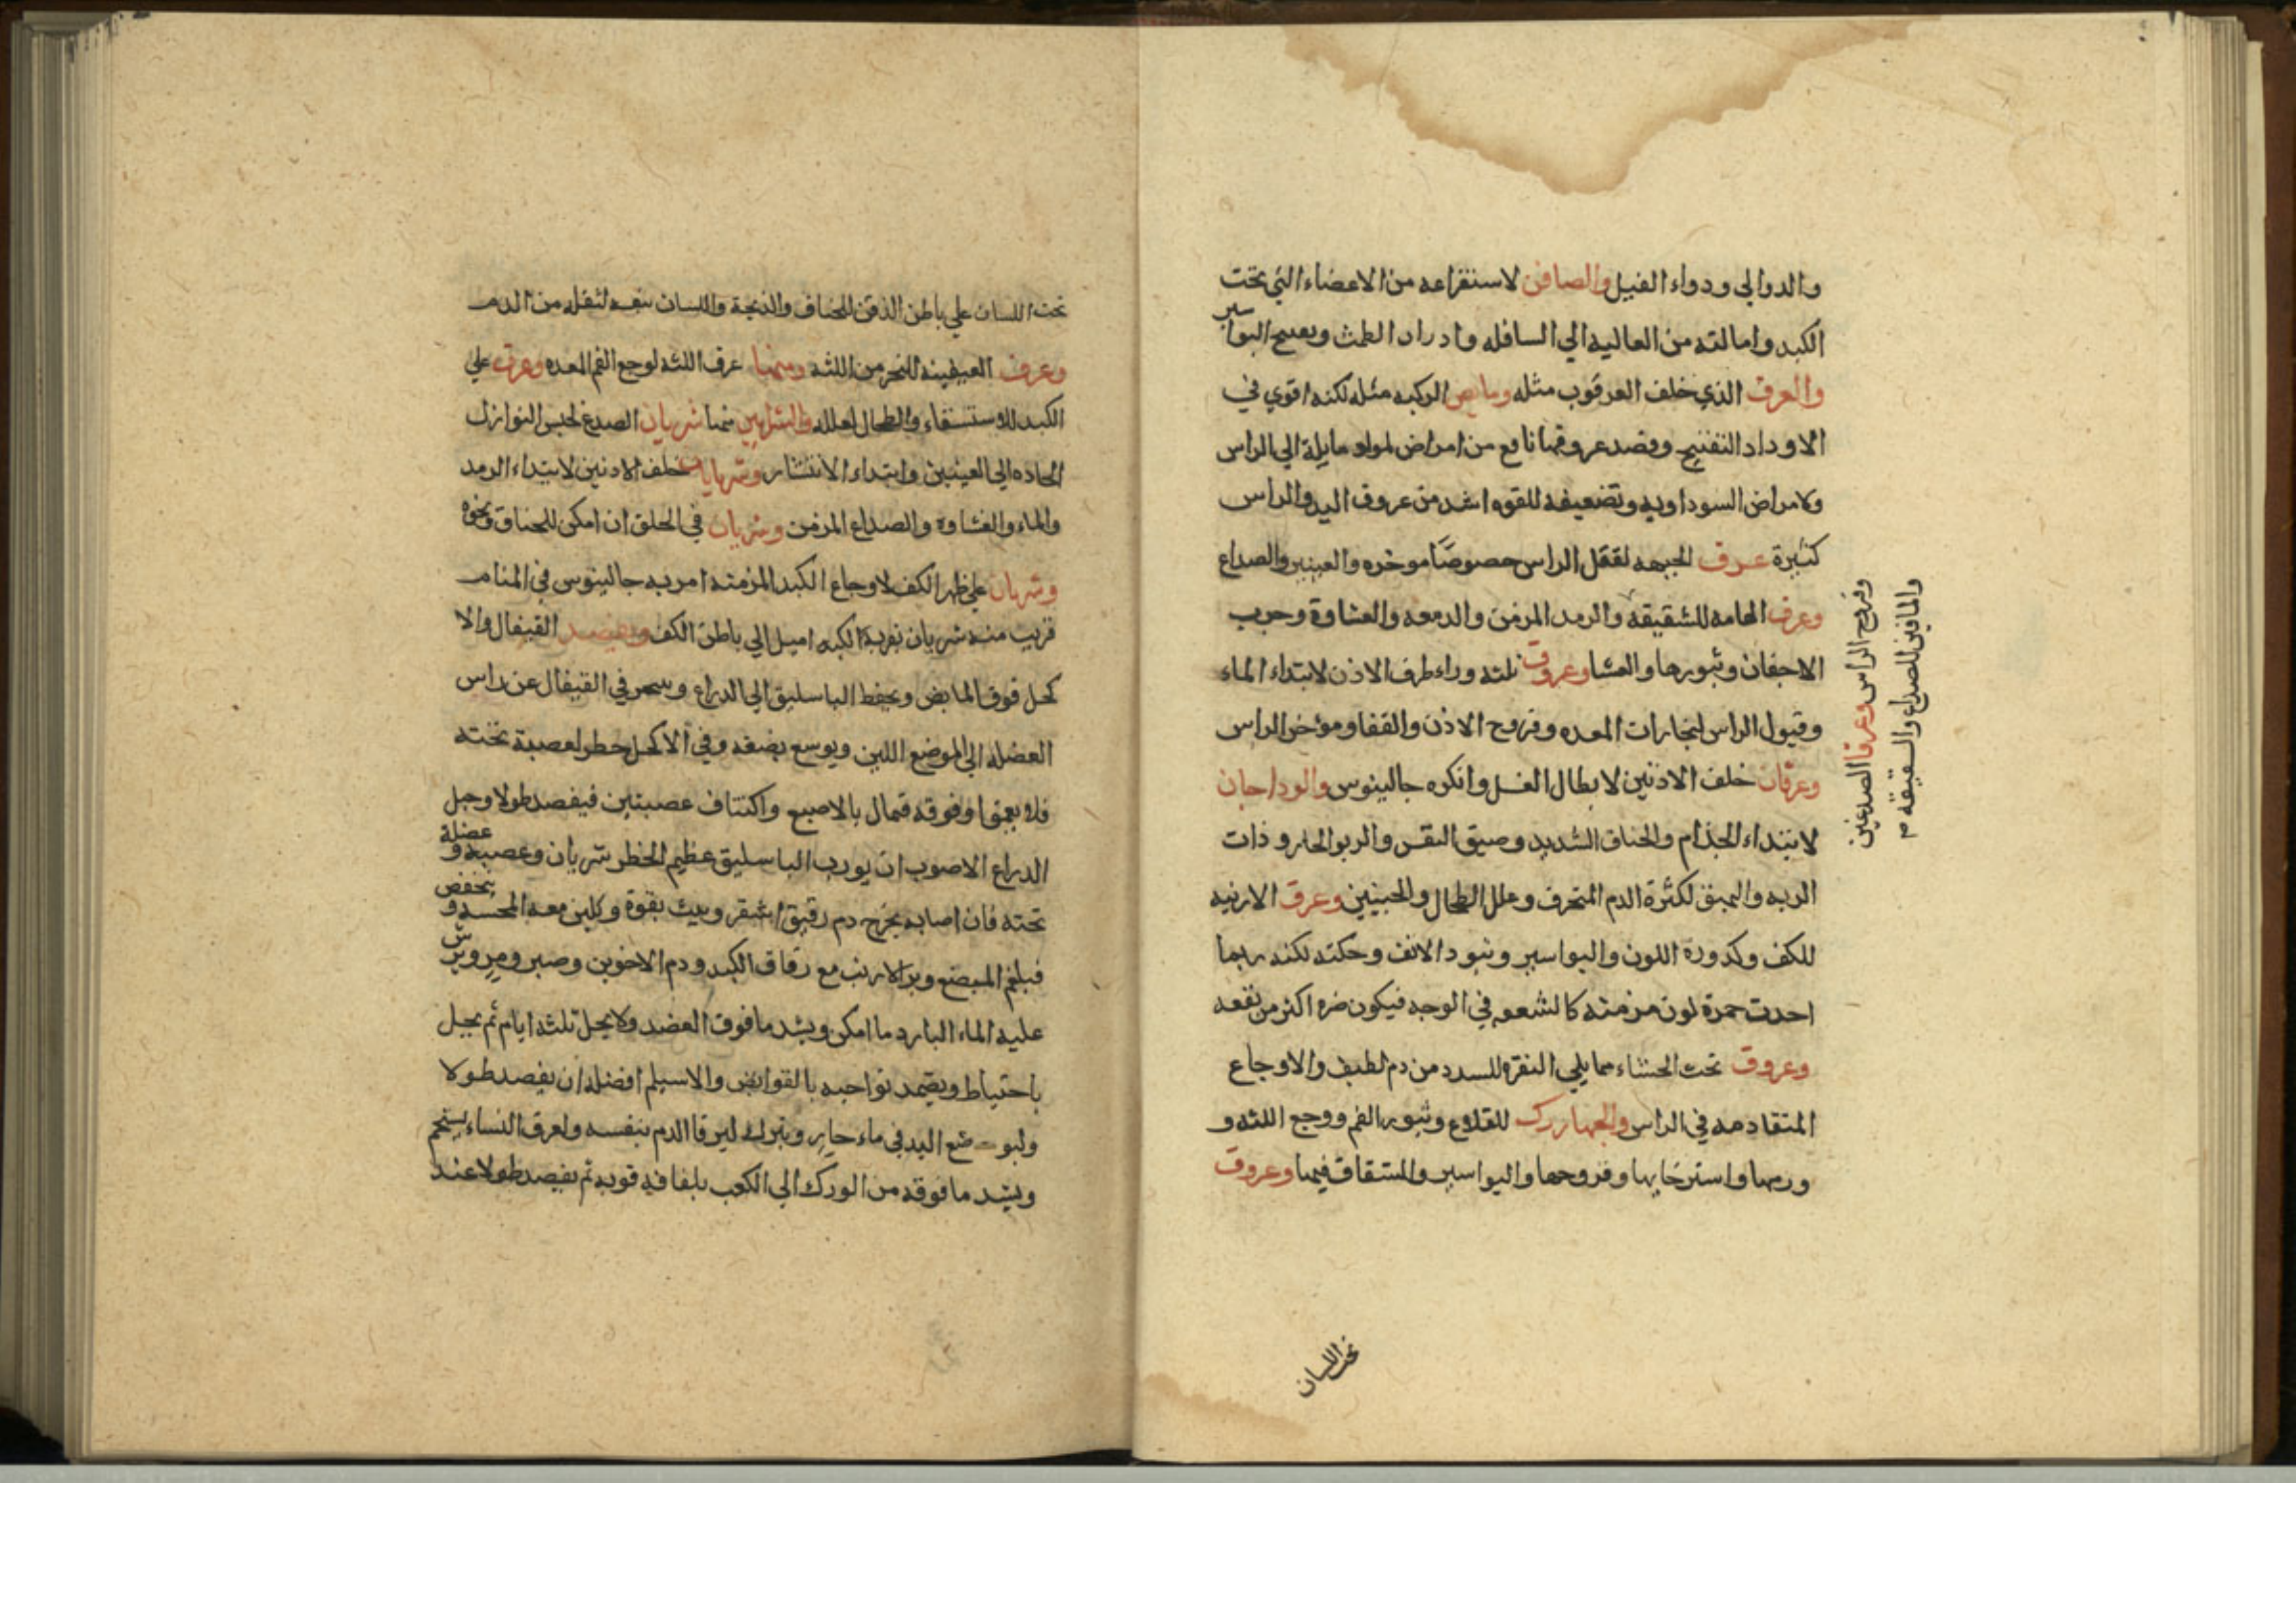 والدوالي ودواء الفيل والصافن لاستفراعه من الاعضاء التي تحت
الكبد وامالته من العاليه الي السافله وادرار الطمث وبفتح البواسير
والعرق الذي خلف العرقوب مثله ومابض الركبه مثله لكنه اقوي في
الادرار التفتيح وفصد عروقها نافع من امراض لمواد مايلة الي الراس
ولامراض السوداويه وتضعيفه للقوه اشد من عروق اليد والراس
كثيرة عرق الجبهه لثقل الراس خصوصًا موخره والعينين والصداع
وعرق الهامه للشقيقه والرمد المزمن والدمعه والغشاوة وجرب
الاجفان وبثورها والعشا وعروق ثلثه وراء طرف الاذن لابتداء الماء
وقبول الراس لبخارات المعده وقروح الاذن والقفا وموخر الراس
وعرقان خلف الاذنين لابطال النسل وانكره جالينوس والوداجان
لابتداء الجذام والخناق الشديد وضيق النفس والربو الحار وذات
الريه والبهق لكثرة الدم المحترق وعلل الطحال والجنبين وعرق الارنبه
للكلف وكدورة اللون والبواسير وبثور الانف وحكته لكنه ربما
احدث حمرة لون مزمنه كالشعفه في الوجه فيكون ضره اكثر من نفعه
وعروق تحت الخششاء مما يلي النقره للسدد من دم لطيف والاوجاع
المتقادمه في الراس والجهاررك للقلاع وبثور الفم ووجع اللثه و
ورمها واسترخايها وقروحها والبواسير والشقاق فيها وعروق
وقروح الراس وعرقا الصدغين
والماقين للصداع والشقيقه م
تحت اللسان
تحت اللسان علي باطن الذقن للخناق والذبحة واللسان نفسه لثقله من الدم
وعرق العنفقيه للبخر من اللثه ومنها عرق اللثه لوجع الفم المعده وعرق علي
الكبد للاستسقاء والطحال لعلله والشرايين منها شريان الصدغ لحبس النوازل
الحاده الي العينين وابتداء الانتشار وشريانات خلف الاذنين لابتداء الرمد
والماء والغشاوة والصداع المزمن وشريان في الحلق ان امكن للخناق ونحوه
وشريان علي ظهر الكف لاوجاع الكبد المزمنه امر به جالينوس في المنام
قريب منه شريان نفر به الكبد اميل الي باطن الكف ويفصد القيفال والا
كحل فوق المابض ويحفظ الباسليق الي الذراع وينحي في القيفال عن راس
العضله الي الموضع اللين ويوسع بضعه وفي الاكحل خطر لعصبة تحته
فلا يعمق او فوقه فتمال بالاصبع واكتناف عصبتين فيفصد طولا وحبل
الذراع الاصوب ان يورب الباسليق عظيم الخطر شريان وعصبه وعضلة
تحته فان اصابه يخرج دم رقيق اشقر ويثب بقوة ويلين معه المجسه وينخفض
فبلقم المبضع وبر الارنب مع رقاق الكبد ودم الاخوين وصبر ومر ويرش
عليه الماء البارد ما امكن ويشد مافوق العضد ولا يحل ثلثه ايام ثم يحل
باحتياط ويضمد نواحيه بالقوابض والاسيلم افضله ان يفصد طولا
وليوضع اليد في ماء حار ويترك ليرقا الدم بنفسه ولعرق النساء يستحم
ويشد مافوقه من الورك الي الكعب بلفافه قويه ثم يفصد طولا عند